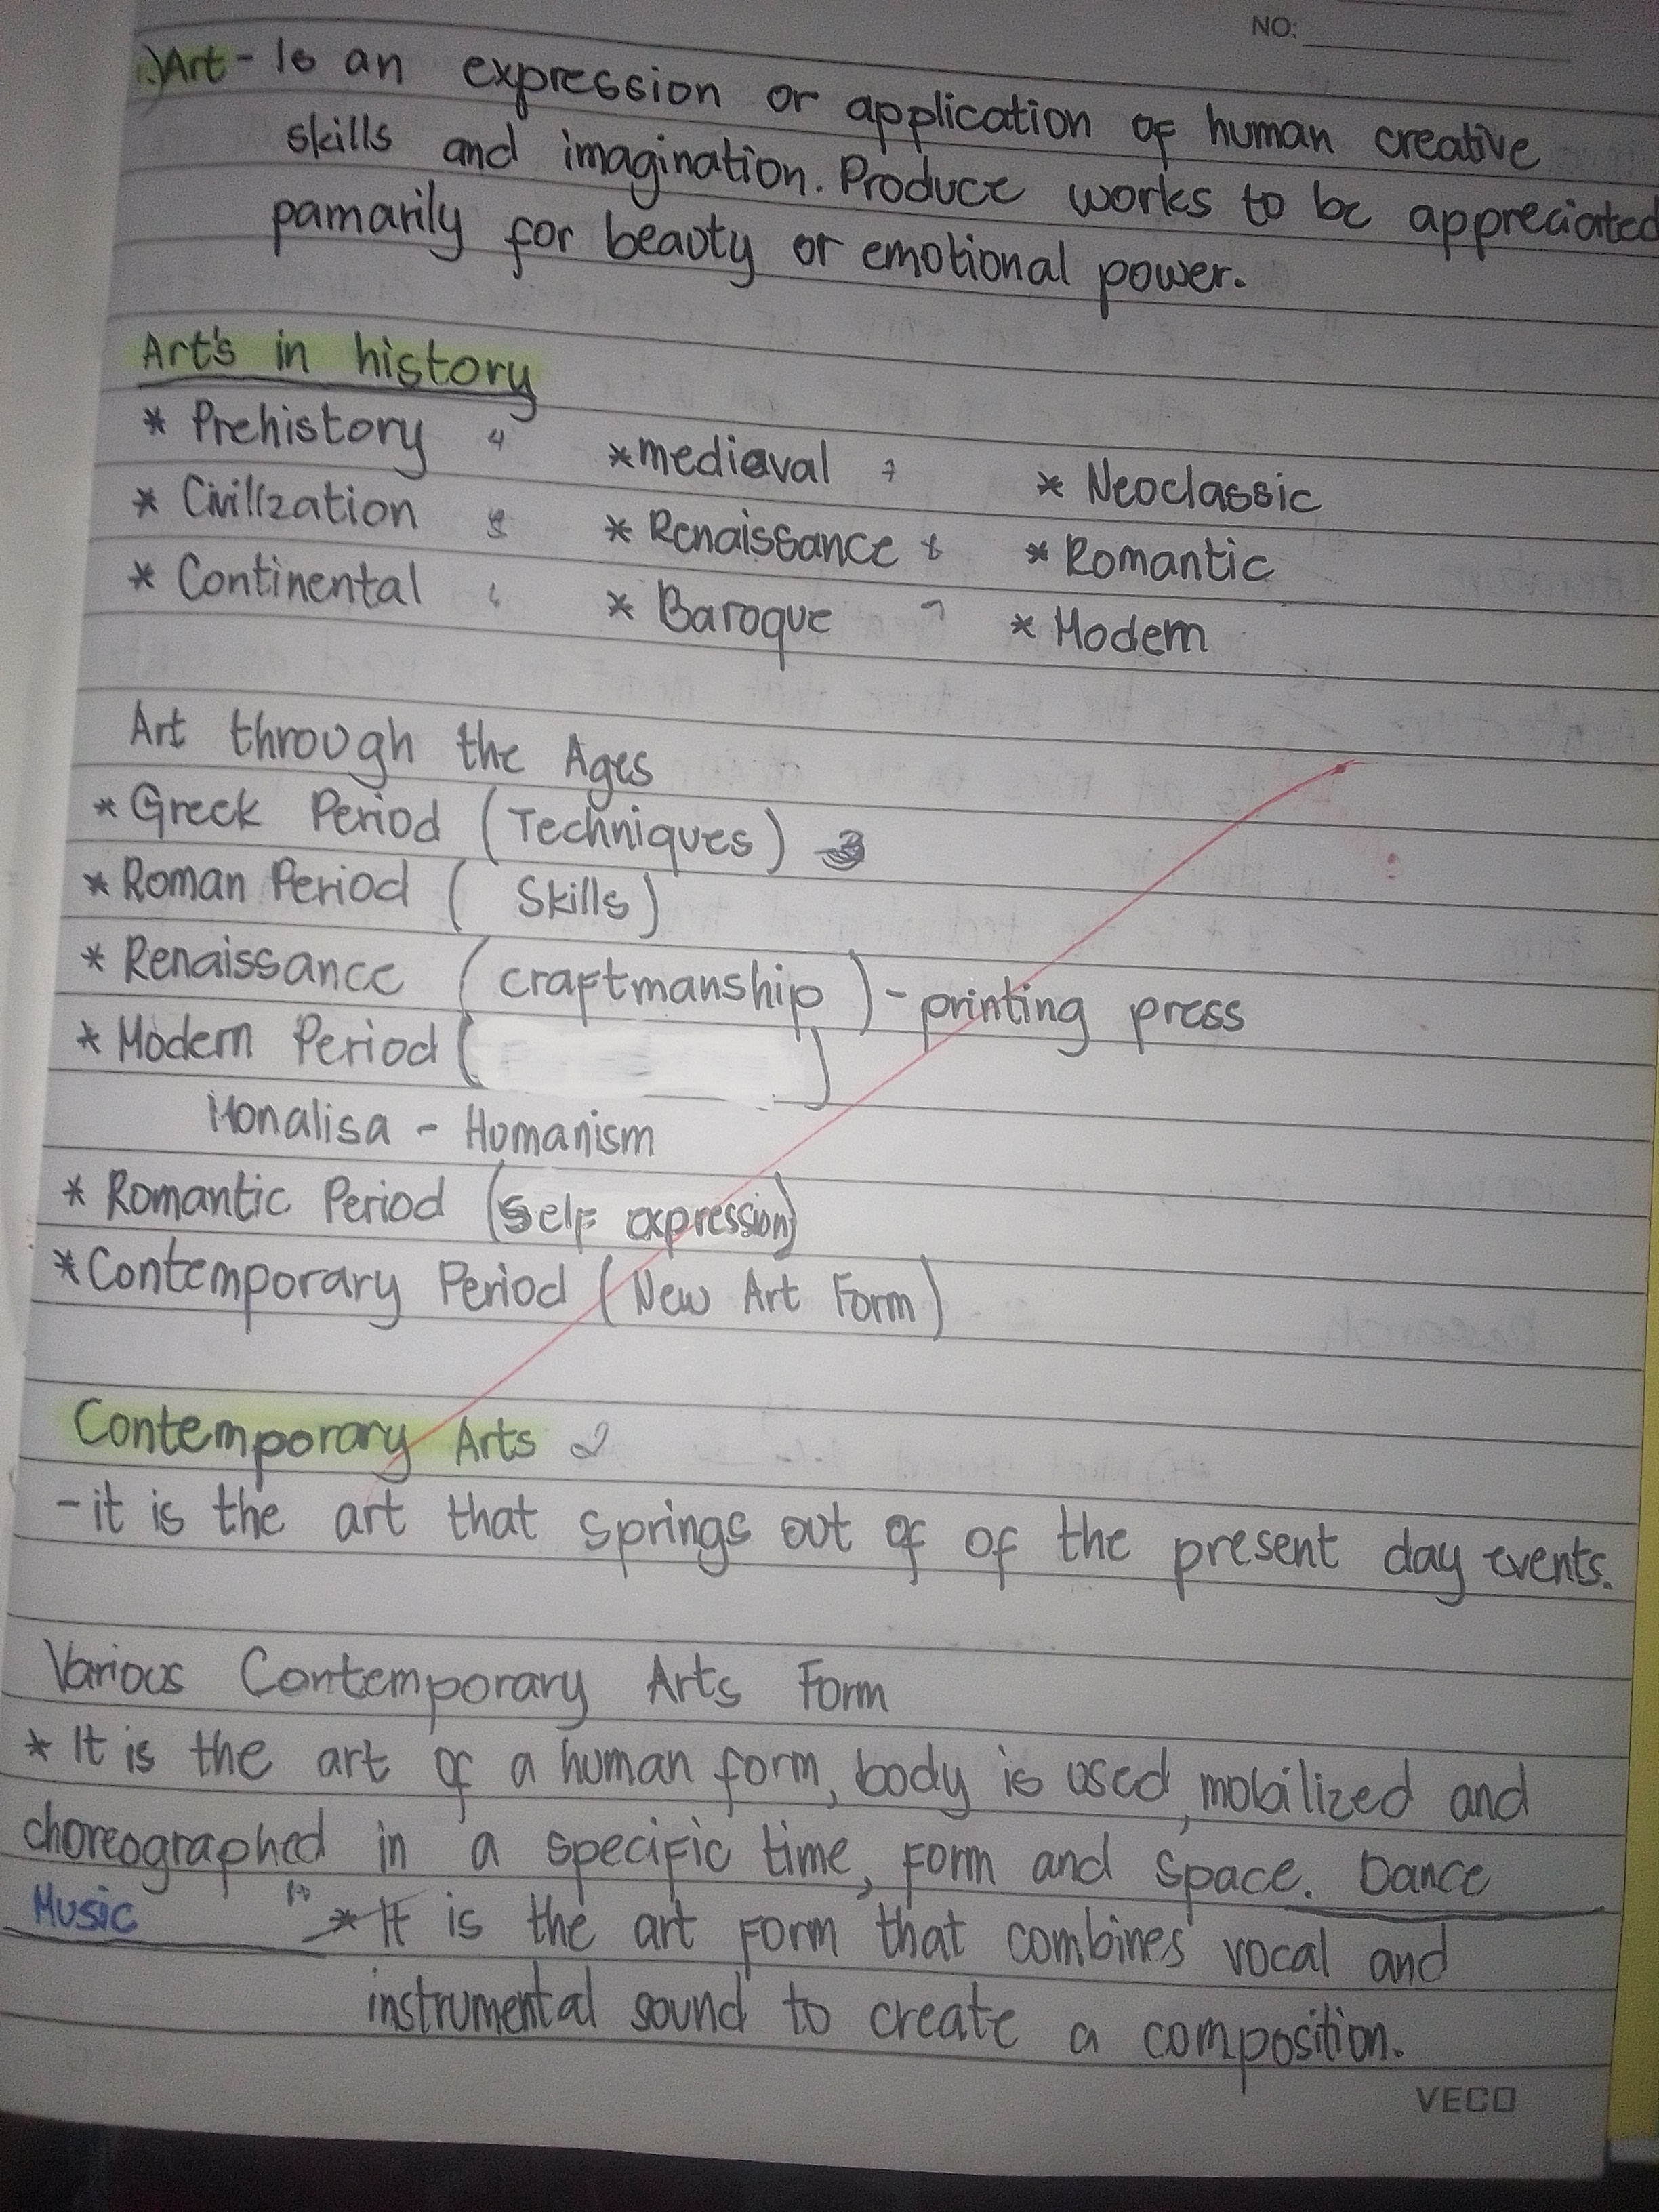 NO:
1.) Art - Is an expression or application of human creative
skills and imagination. Produce works to be appreciated
pamarily for beauty or emotional power.
Art's in history
* Prehistory * medieval * Neoclassic
* Civilization * Renaissance * Romantic
* Continental * Baroque * Modern
Art through the Ages
* Greek Period (Techniques)
* Roman Period ( Skills)
* Renaissance (craftmanship) - printing press
* Modern Period ( )
Monalisa - Humanism
* Romantic Period (Self expression)
* Contemporary Period (New Art Form)
Contemporary Arts 2
- it is the art that springs out of of the present day events.
Various Contemporary Arts Form
* It is the art of a human form, body is used, mobilized and
choreographed in a specific time, form and space. Dance
Music * It is the art form that combines vocal and
instrumental sound to create a composition.
VECO